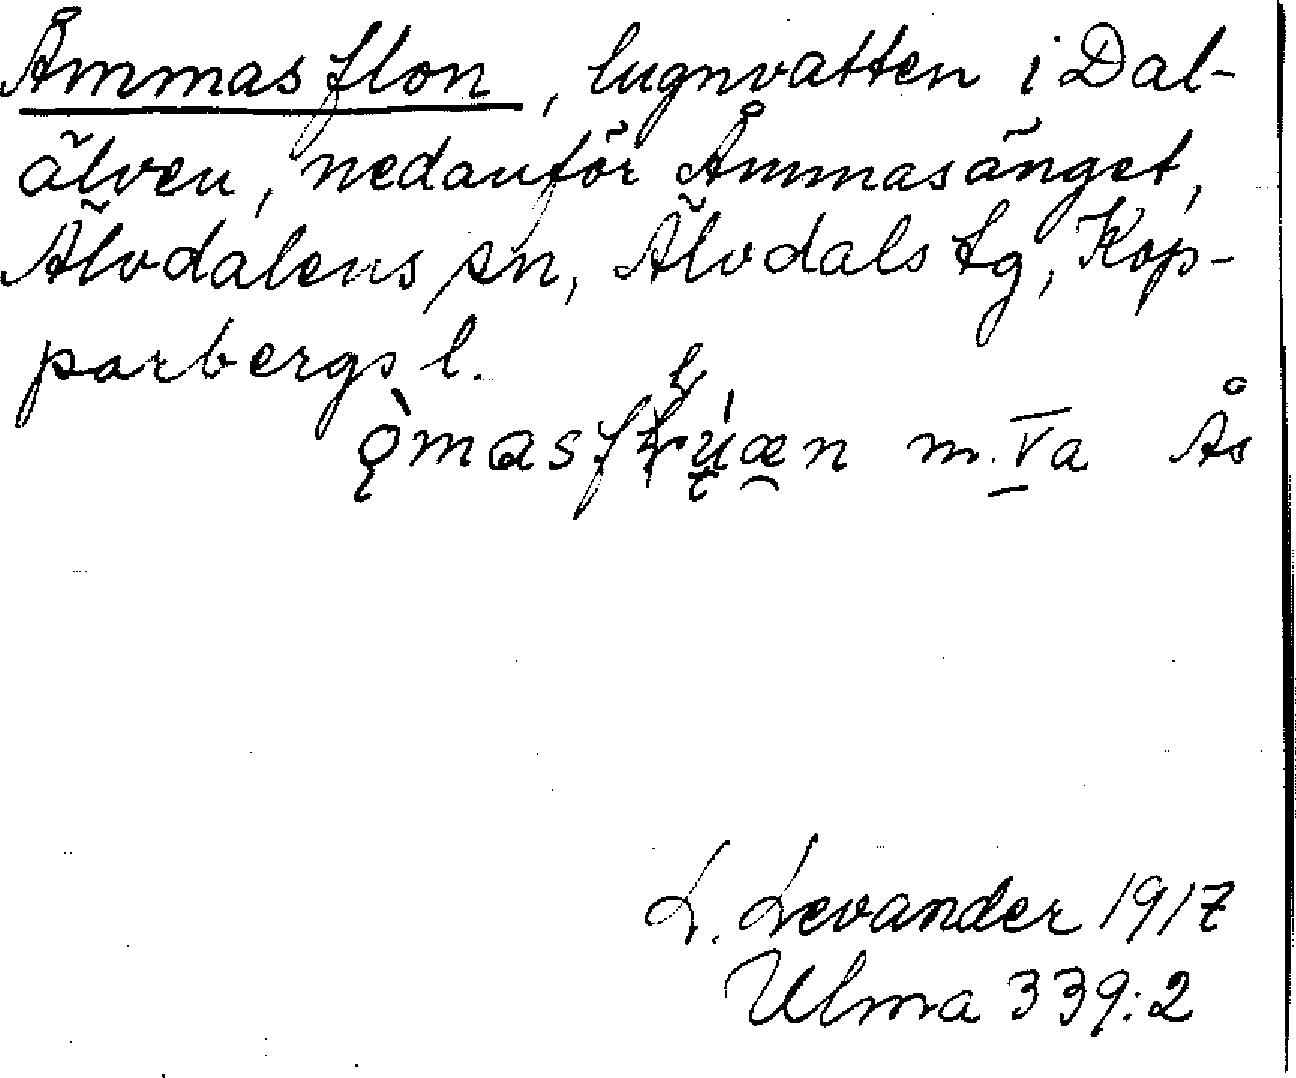 Åmmasflon, lugnvatten i Dal-
älven, nedanför Åmmasänget,
Älvdalens sn, Älvdals tg, Kop-
parbergs l.
m. Va Ås
L. Levander 1917
Ulma 339:2